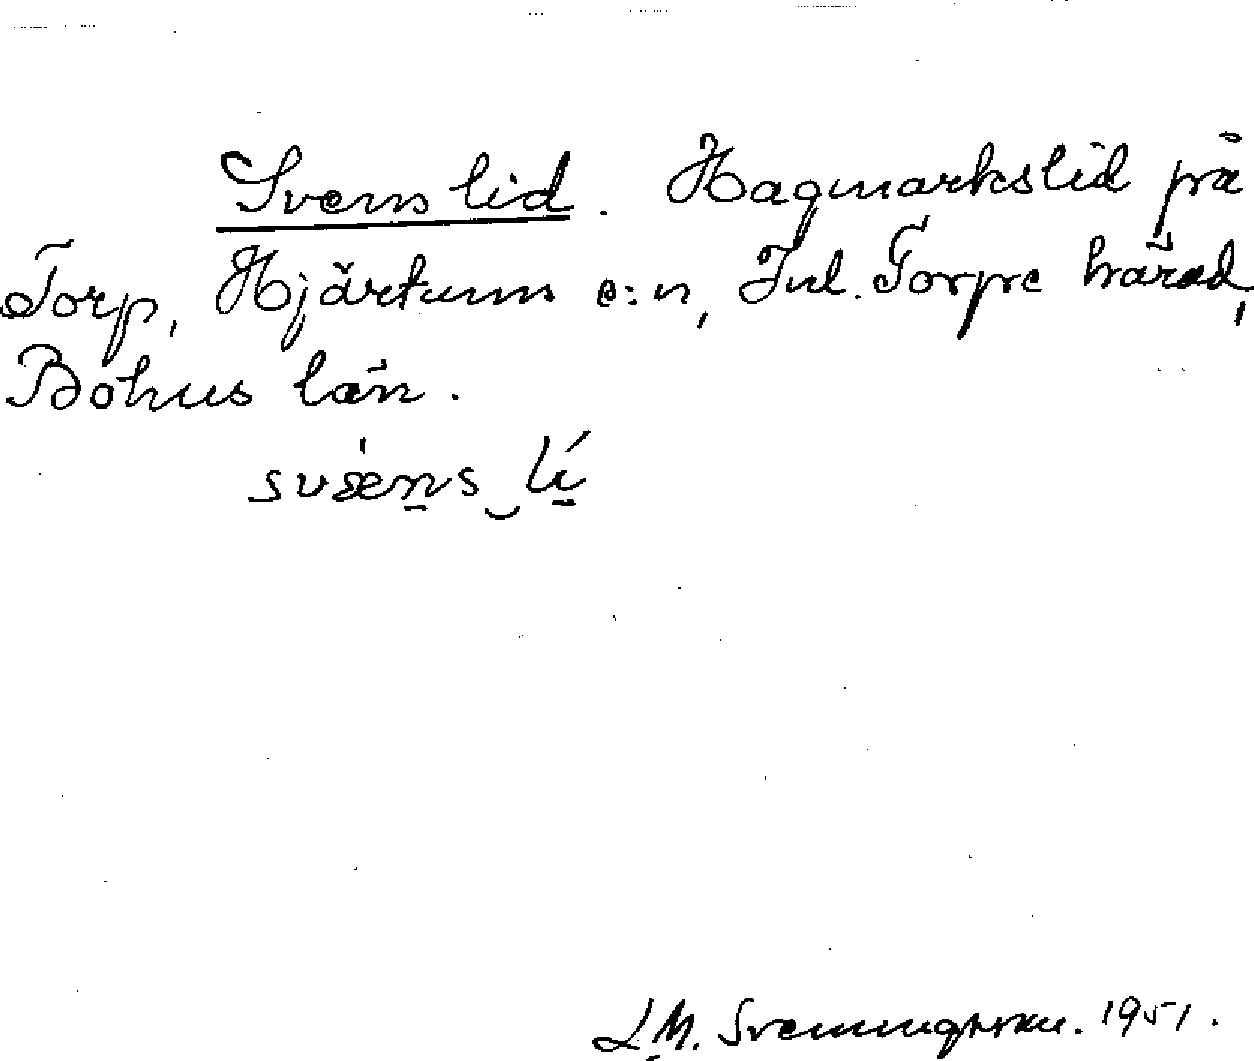 Svens lid. Hagmarkslid på
Torp, Hjärtums s:n, Inl. Torpe härad,
Bohus län.
L.M. Svenungsson. 1951.